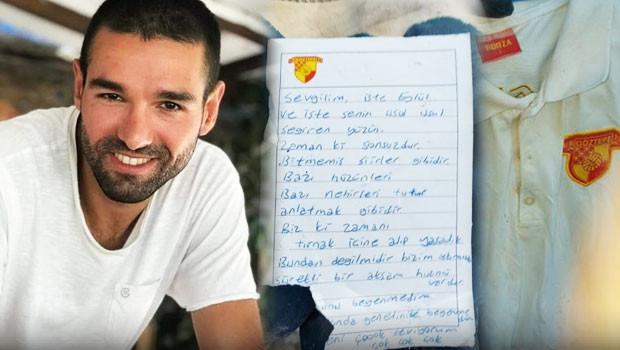 Sevgilim, işte Eylül.
Ve işte senin usul usul
seğiren yüzün.
Zaman ki sonsuzdur.
Bitmemiş şiirler gibidir.
Bazı hüzünleri
Bazı nehirleri tutup
anlatmak gibidir.
Biz ki zamanı
tırnak içine alıp yaşadık
Bundan değilmidir bizim
sürekli bir akşam hüznü
vardır.
beğenmedim
genellikle
seviyorum
çok çok çok
GÖZTEPE